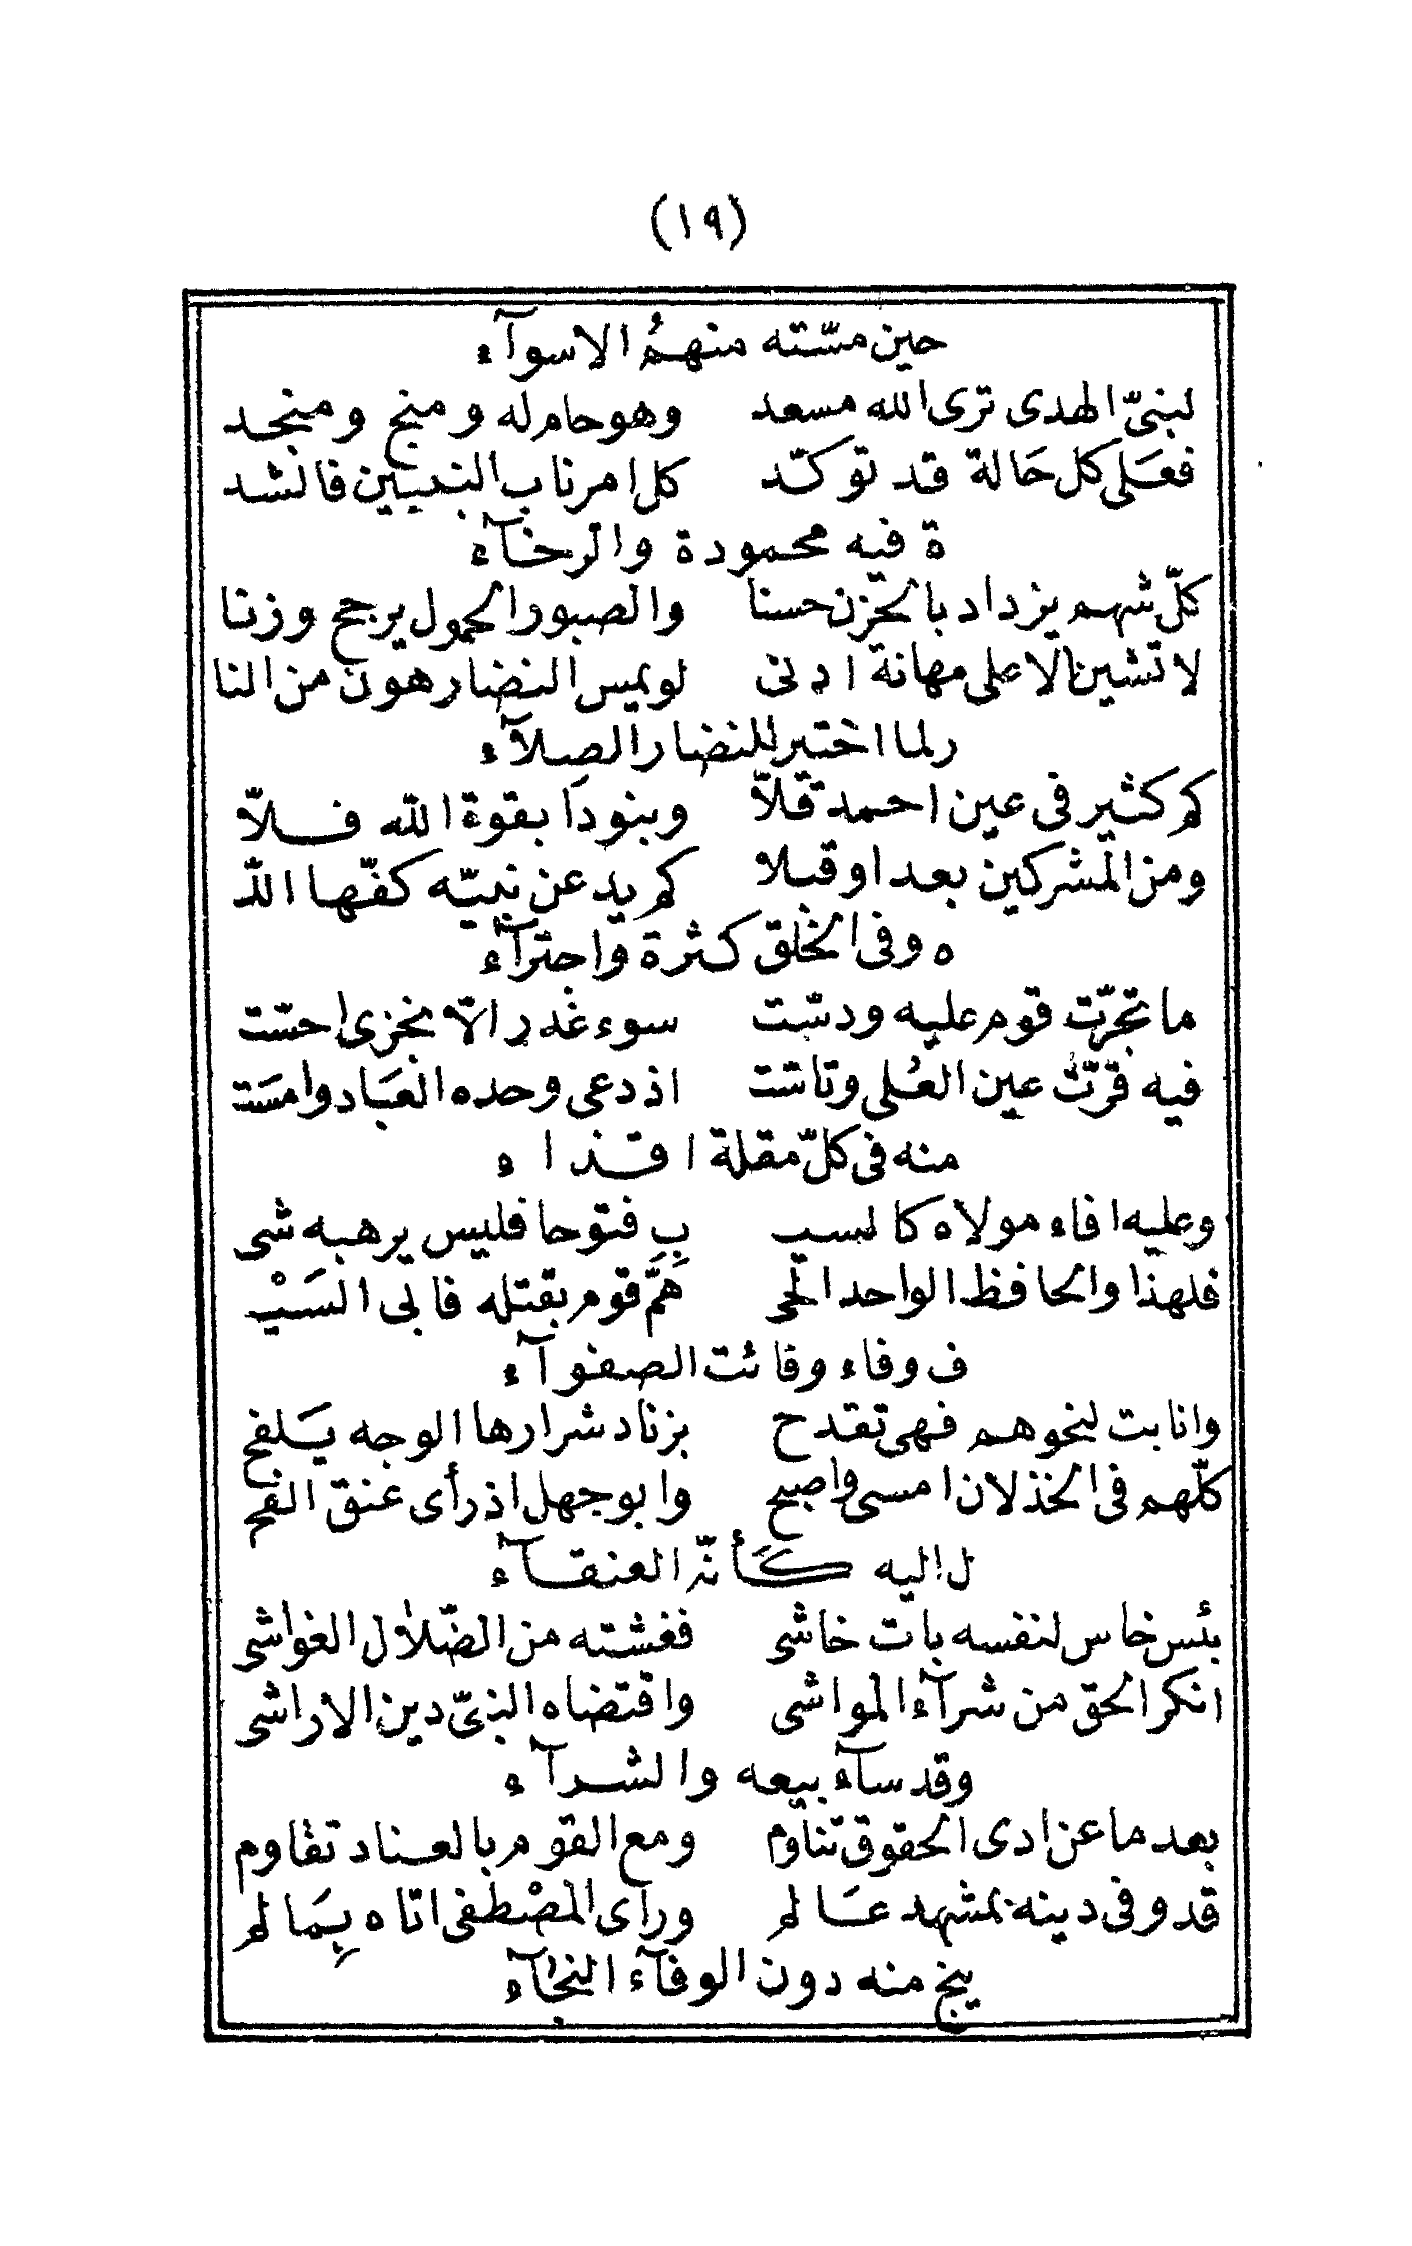 (١٩)
حين مسّته منهمُ الاسوآء
لنبىّ الهدى ترى الله مسعد وهو حام له ومنج ومنجد
فعَلى كل حَالة قد توكّد كل امر ناب النبيين فالشد
ة فيه محمودة والرخآء
كلّ شهم يزداد بالحزن حسنا والصبور الحمول يرجح وزنا
لا تشين الاعلى مهانة ادنى لو يمس النضار هون من النا
ر لما اختير للنضار الصِلآء
كم كثير فى عين احمد قلاّ وبنودا بقوة الله فلاّ
ومن المشركين بعد او قبلا كم يد عن نبيّه كفّها اللّٰ
ه وفى الخلق كثرة واجترآء
ما تجرّت قوم عليه ودسّت سوء غدر الاّ بخزى احسّت
فيه قرّت عين العُلى وتاسّت اذ دعى وحده العبَاد وامسَت
منه فى كلّ مقلة اقذاء
وعليه افاء مولاه كالسيب بِ فتوحا فليس يرهبه شى
فلهذا والحافظ الواحد الحى هَمَّ قوم بقتله فابى السَيْ
ف وفاء وفائت الصفوآء
وانابت لنحوهم فهى تقدح بزناد شرارها الوجه يَلفح
كلّهم فى الخذلان امسى واصبح وابو جهل اذ رأى عنق الفح
ل اليه كَأنّه العنقآء
بئس خاس لنفسه بات خاشى فغشته من الضّلال الغواشى
انكر الحق من شرآء المواشى واقتضاه النبىّ دين الاراشى
وقد سآء بيعه والشرآء
بعد ما عن ادى الحقوق تناوم ومع القوم بالعناد تقاوم
قد وفى دينه بمشهد عَالم ورأى المصْطفى اتاه بِمَا لم
ينج منه دون الوفآء النجآء